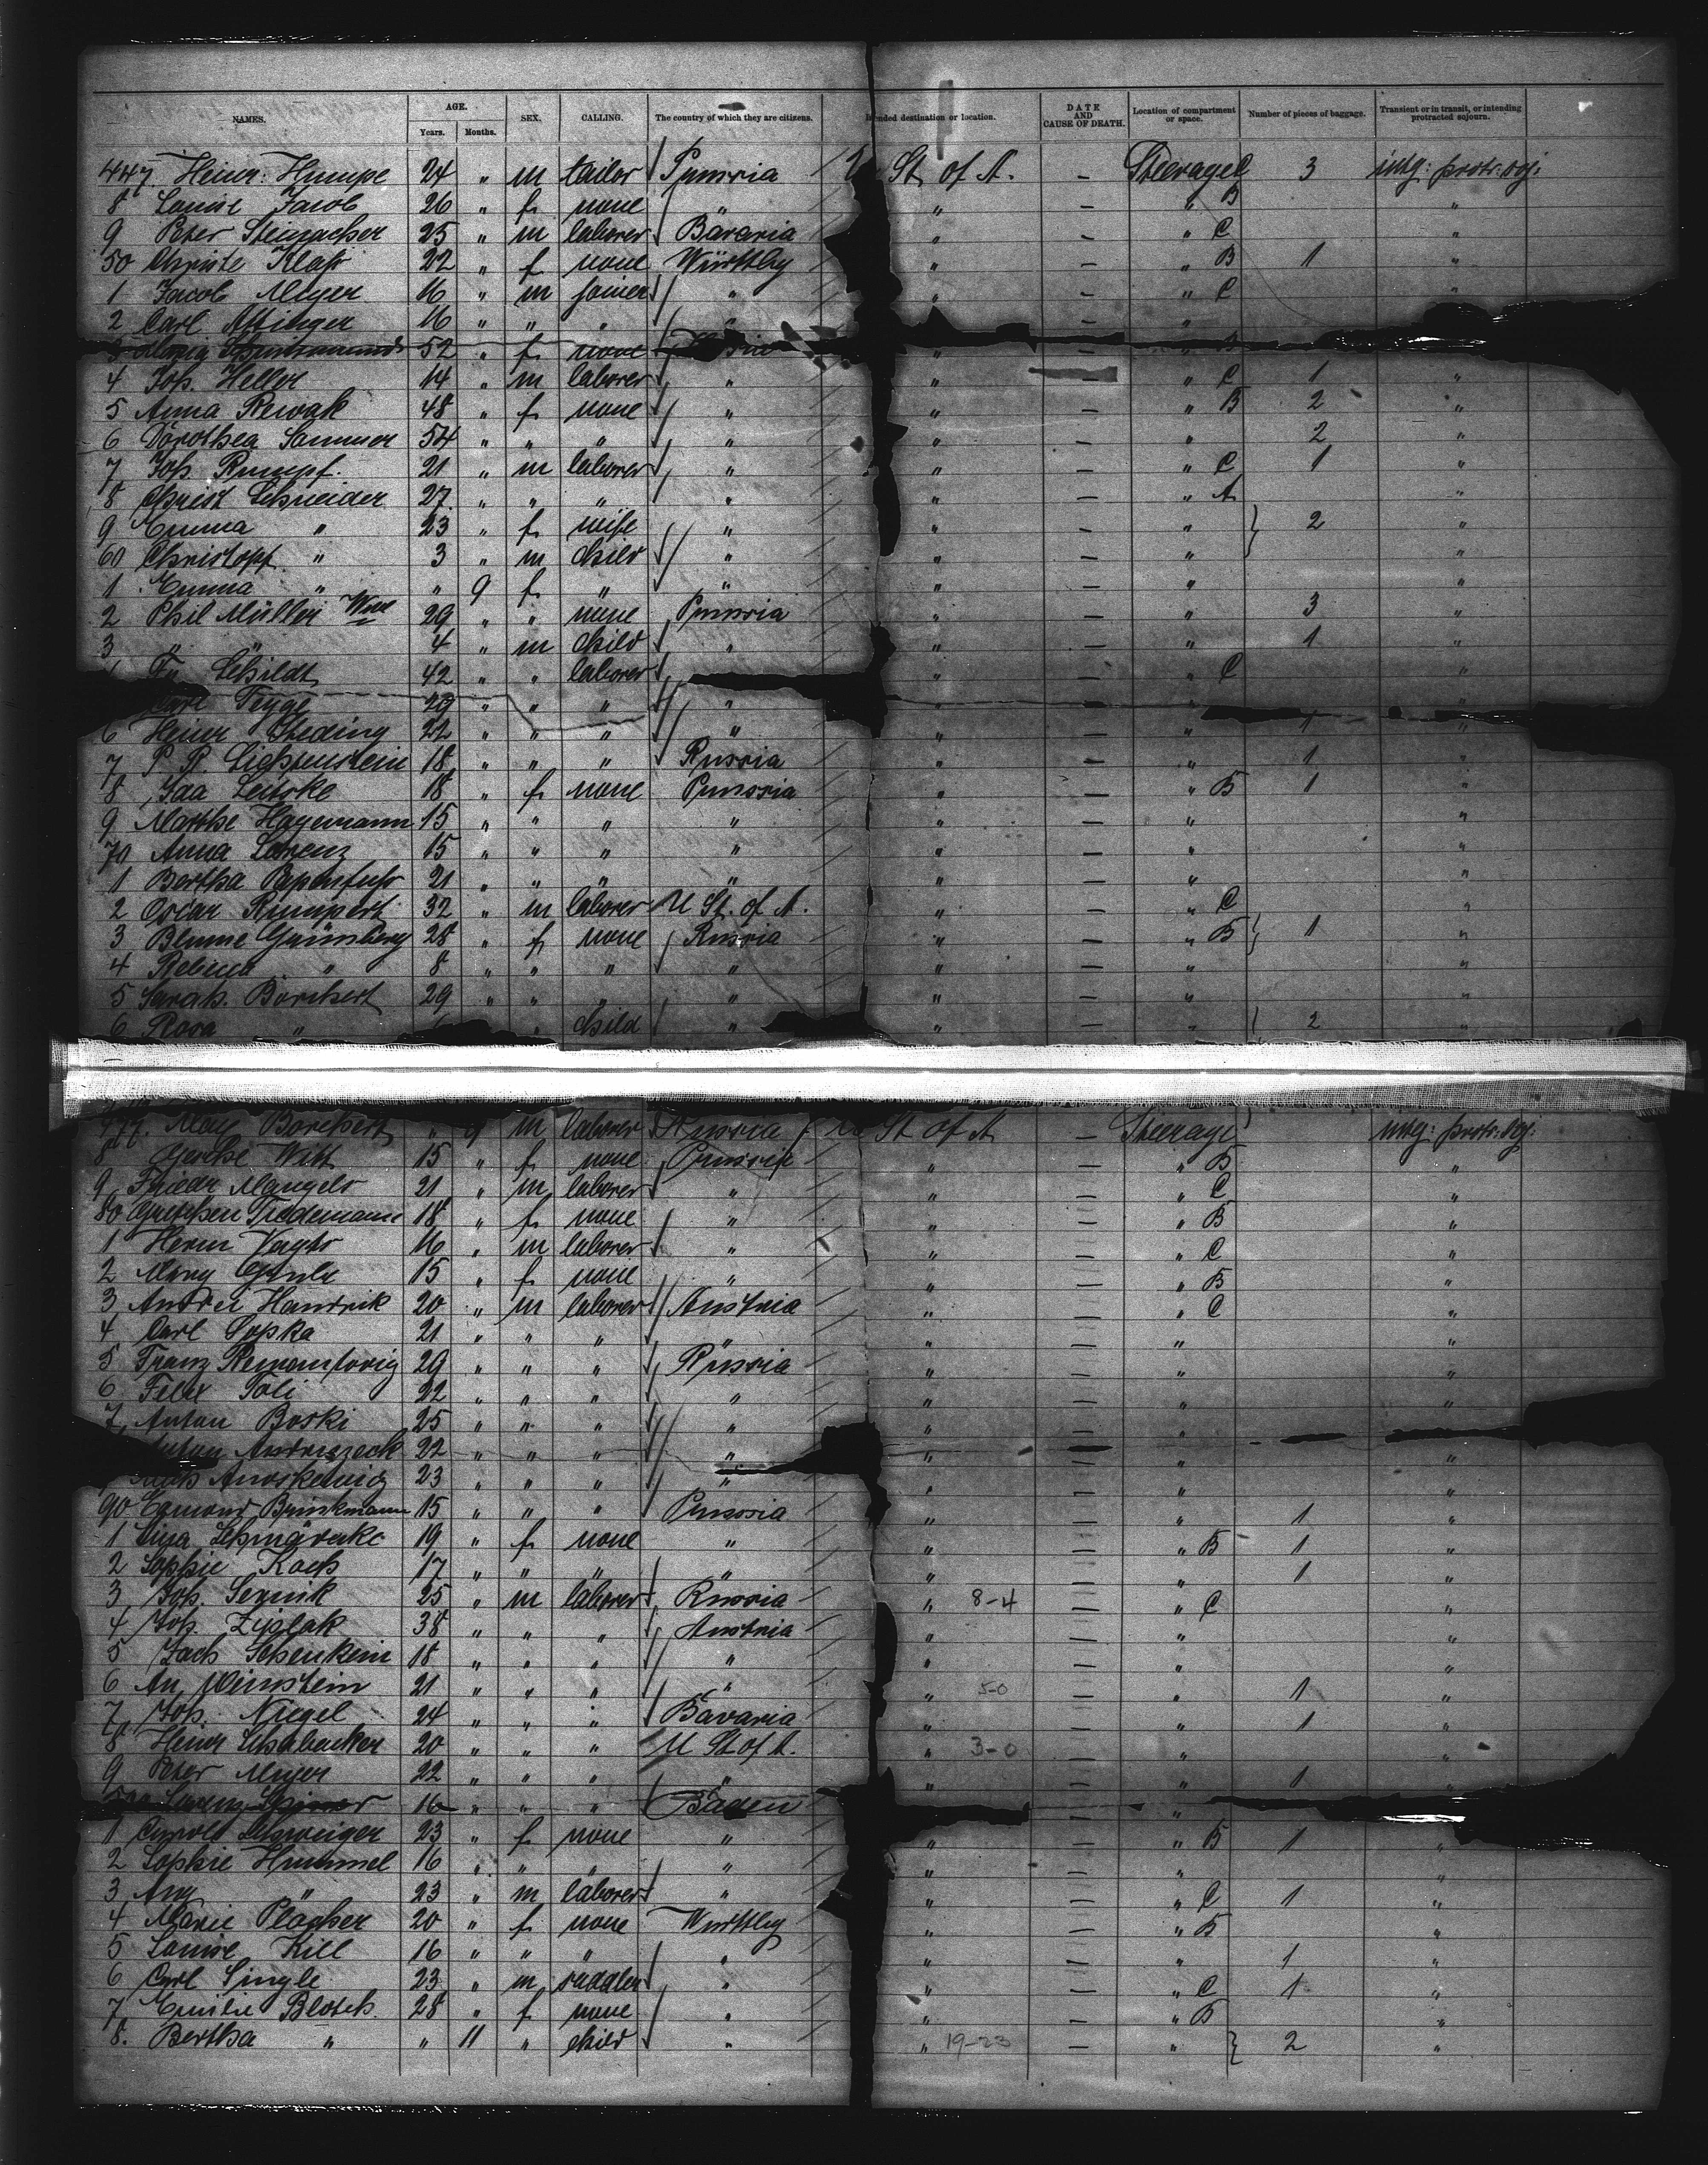 NAMES. AGE. Years. Months. SEX. CALLING. The country of which they are citizens. Intended destination or location. DATE AND CAUSE OF DEATH. Location of compartment or space. Number of pieces of baggage. Transient or in transit, or intending protracted sojourn.
447. Heinr. Humpe 24 " m tailor Prussia U St. of A. – Steerage C 3 intg: protr: soj:
8 Louise Jacob 26 " f none " " – " B "
9 Peter 25 " m laborer Bavaria " – " C "
50 Christe 22 " f none Württbg " – " B 1 "
1 Jacob Meyer 16 " m joiner " " – " C "
2 Carl Attinger 16 " " " " – "
3 Maria 52 " f none " – " B
4 Joh. Heller 14 " m laborer " " – " C 1 "
5 Anna Rewak 48 " f none " " – " B 2 "
6 Dorothea Sammer 54 " " " " " – " 2 "
7 Joh. Rumpf. 21 " m laborer " " – " C 1 "
8 Christ Schneider 27 " " " " " – " A "
9 Emma " 23 " f wife " " – " 2 "
60 Christopf " 3 " m child " " – " "
1 Emma " " 9 f " " " – " "
2 Phil Müller 29 " " none Prussia " – " 3 "
3 " " 4 " m child " " – " 1 "
Schildt 42 " " laborer " – " C "
Carl Tegge 20 " " " " " – " "
6 Heinr Steding 22 " " " " " – " 1 "
7 P. P. Lichtenstein 18 " " " Russia " – " 1 "
8 Ida Leitzke 18 " f none Prussia " – " B 1 "
9 Marthe Hagemann 15 " " " " " – " "
70 Anna Lorenz 15 " " " " " – " "
1 Bertha Papenfuss 21 " " " " " – " "
2 Oscar Rumpert 32 " m laborer U St. of A. " – " C "
3 Blume Grünsberg 28 " f none Russia " – " B 1 "
4 " 8 " " " " " – " "
5 Sarah Borchert 29 " " " " " – " "
6 Rosa " " child " " – " 2 "
477. Max Borchert " 9 m laborer Russia U St of A – Steerage intg: protr: soj:
8 Gesche Witt 15 " f none Prussia " – " B "
9 Frieder Mangels 21 " m laborer " " – " C "
80 Gretchen Tiedemann 18 " f none " " – " B "
1 Herm Vagts 16 " m laborer " " – " C "
2 Mary 15 " f none " " – " B "
3 Andrei Handrik 20 " m laborer Austria " – " C "
4 Carl Sopka 21 " " " " " – " "
5 Franz 29 " " " Russia " – " "
6 Felix Toli 22 " " " " " – " "
7 Anton Boski 25 " " " " " – " "
Anton Andruszeck 22 " " " " " – " "
23 " " " " " – " "
90 Edmond Brinkmann 15 " " " Prussia " – " 1 "
1 19 " f none " " – " B 1 "
2 Sophie Koch 17 " " " " " – " 1 "
3 Joh. Sernik 25 " m laborer Russia " 8-4 – " C "
4 Joh. Ziplak 38 " " " Austria " – " "
5 Jach Schenkein 18 " " " " " – " "
6 An Weinstein 21 " " " " " 5-0 – " 1 "
7 Joh. Niegel 24 " " " Bavaria " – " 1 "
8 Heinr Schabacker 20 " " " U St of A. " 3-0 – " "
9 Peter Meyer 22 " " " " " – " 1 "
Lorenz 16 " " " Baden – "
1 Schweiger 23 " f none " " – " B 1 "
2 Sophie Hummel 16 " " " " " – " "
3 Aug " 23 " m laborer " " – " C 1 "
4 Marie Plocher 20 " f none Württbg " – " B "
5 Louise Kill 16 " " " " " – " 1 "
6 Carl Single 23 " m saddler " " – " C 1 "
7 Emilie Blotch. 28 " f none " " – " B "
8. Bertha " " 11 " child " " 19-23 – " 2 "